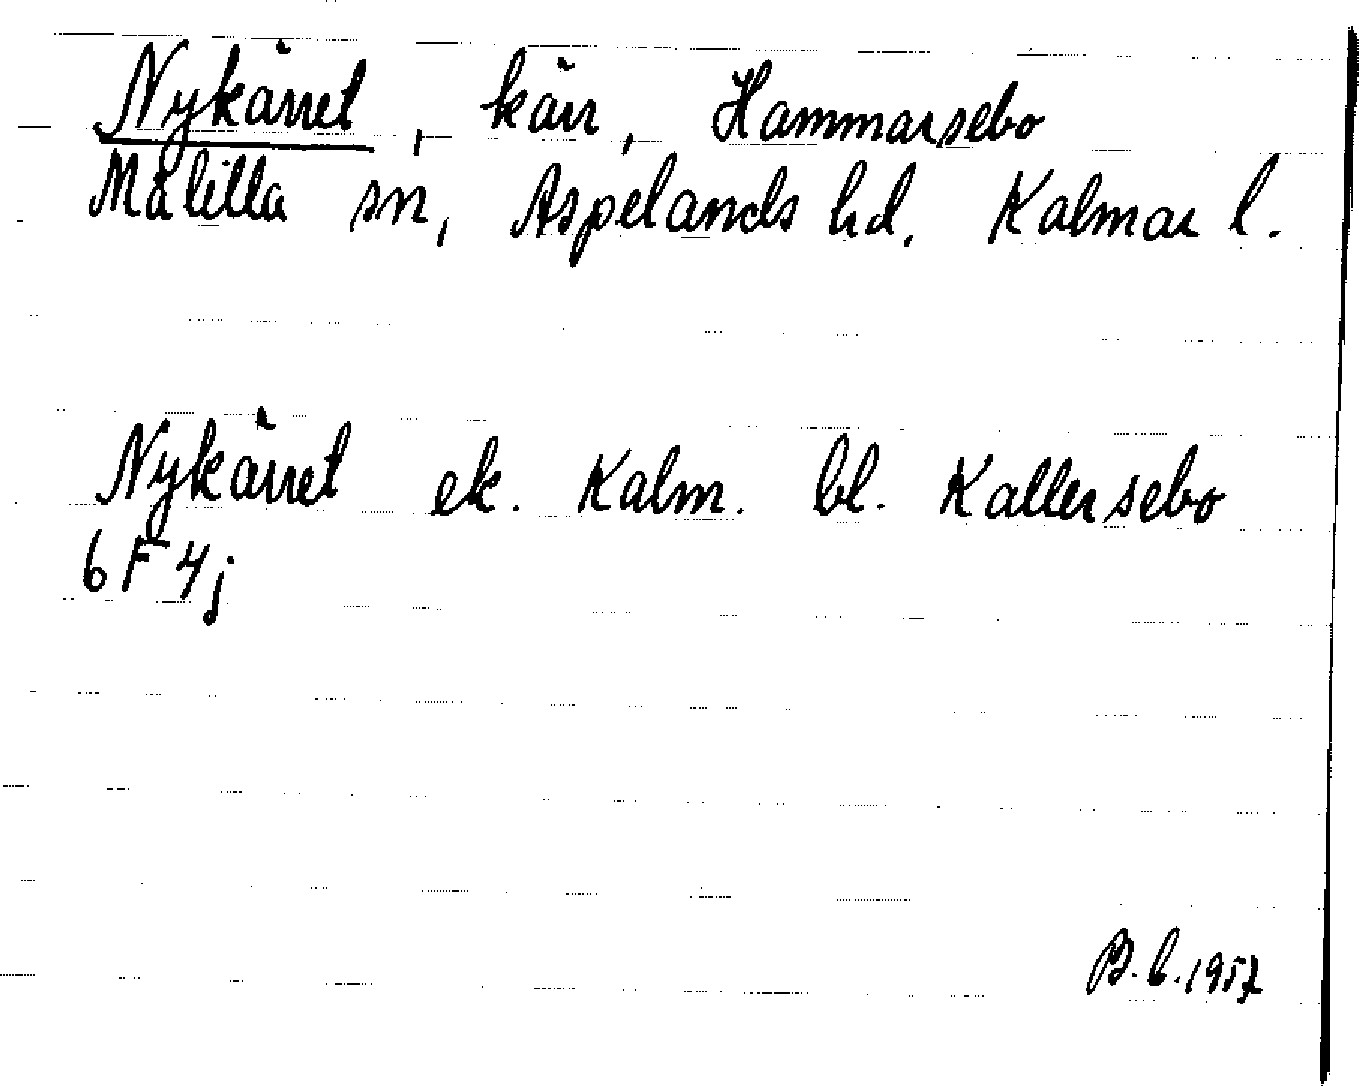 Nykärret, kärr, Hammarsebo
Målilla sn, Aspelands hd, Kalmar l.
Nykärret ek. Kalm. bl. Kallersebo
6 F 4 j
B.b.1957